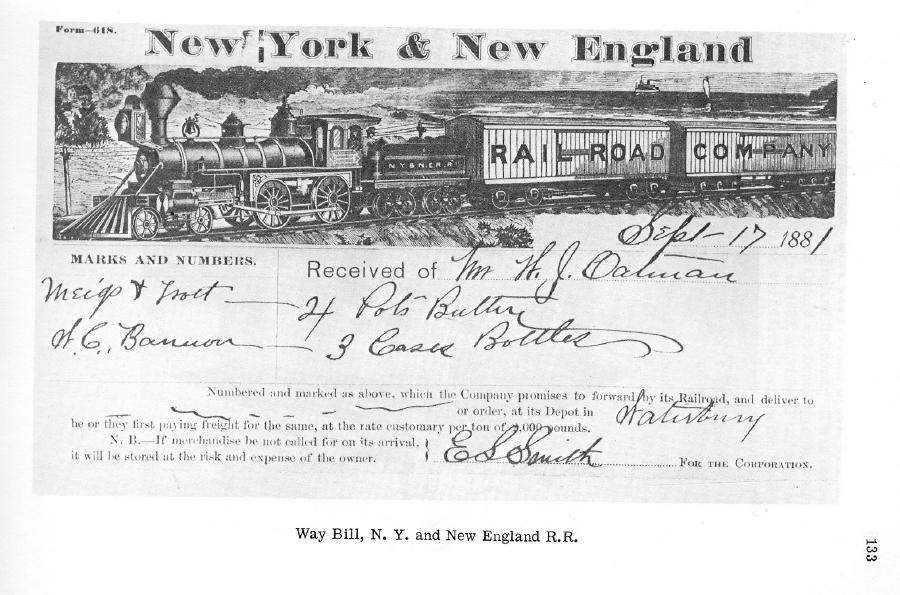 Form—618.
New York & New England
N.Y. & N.E.R.R.
RAIL-ROAD COMPANY
Sept 17 1881
MARKS AND NUMBERS.
Received of Mr W. J. Oatman
Meigs & Trott 4 Pots Butter
W. C. Bannon 3 Cases Bottles
Numbered and marked as above, which the Company promises to forward by its Railroad, and deliver to
or order, at its Depot in Waterbury
he or they first paying freight for the same, at the rate customary per ton of 2,000 pounds.
N. B.—If merchandise be not called for on its arrival,
it will be stored at the risk and expense of the owner.
E S Smith FOR THE CORPORATION.
Way Bill, N. Y. and New England R.R.
133